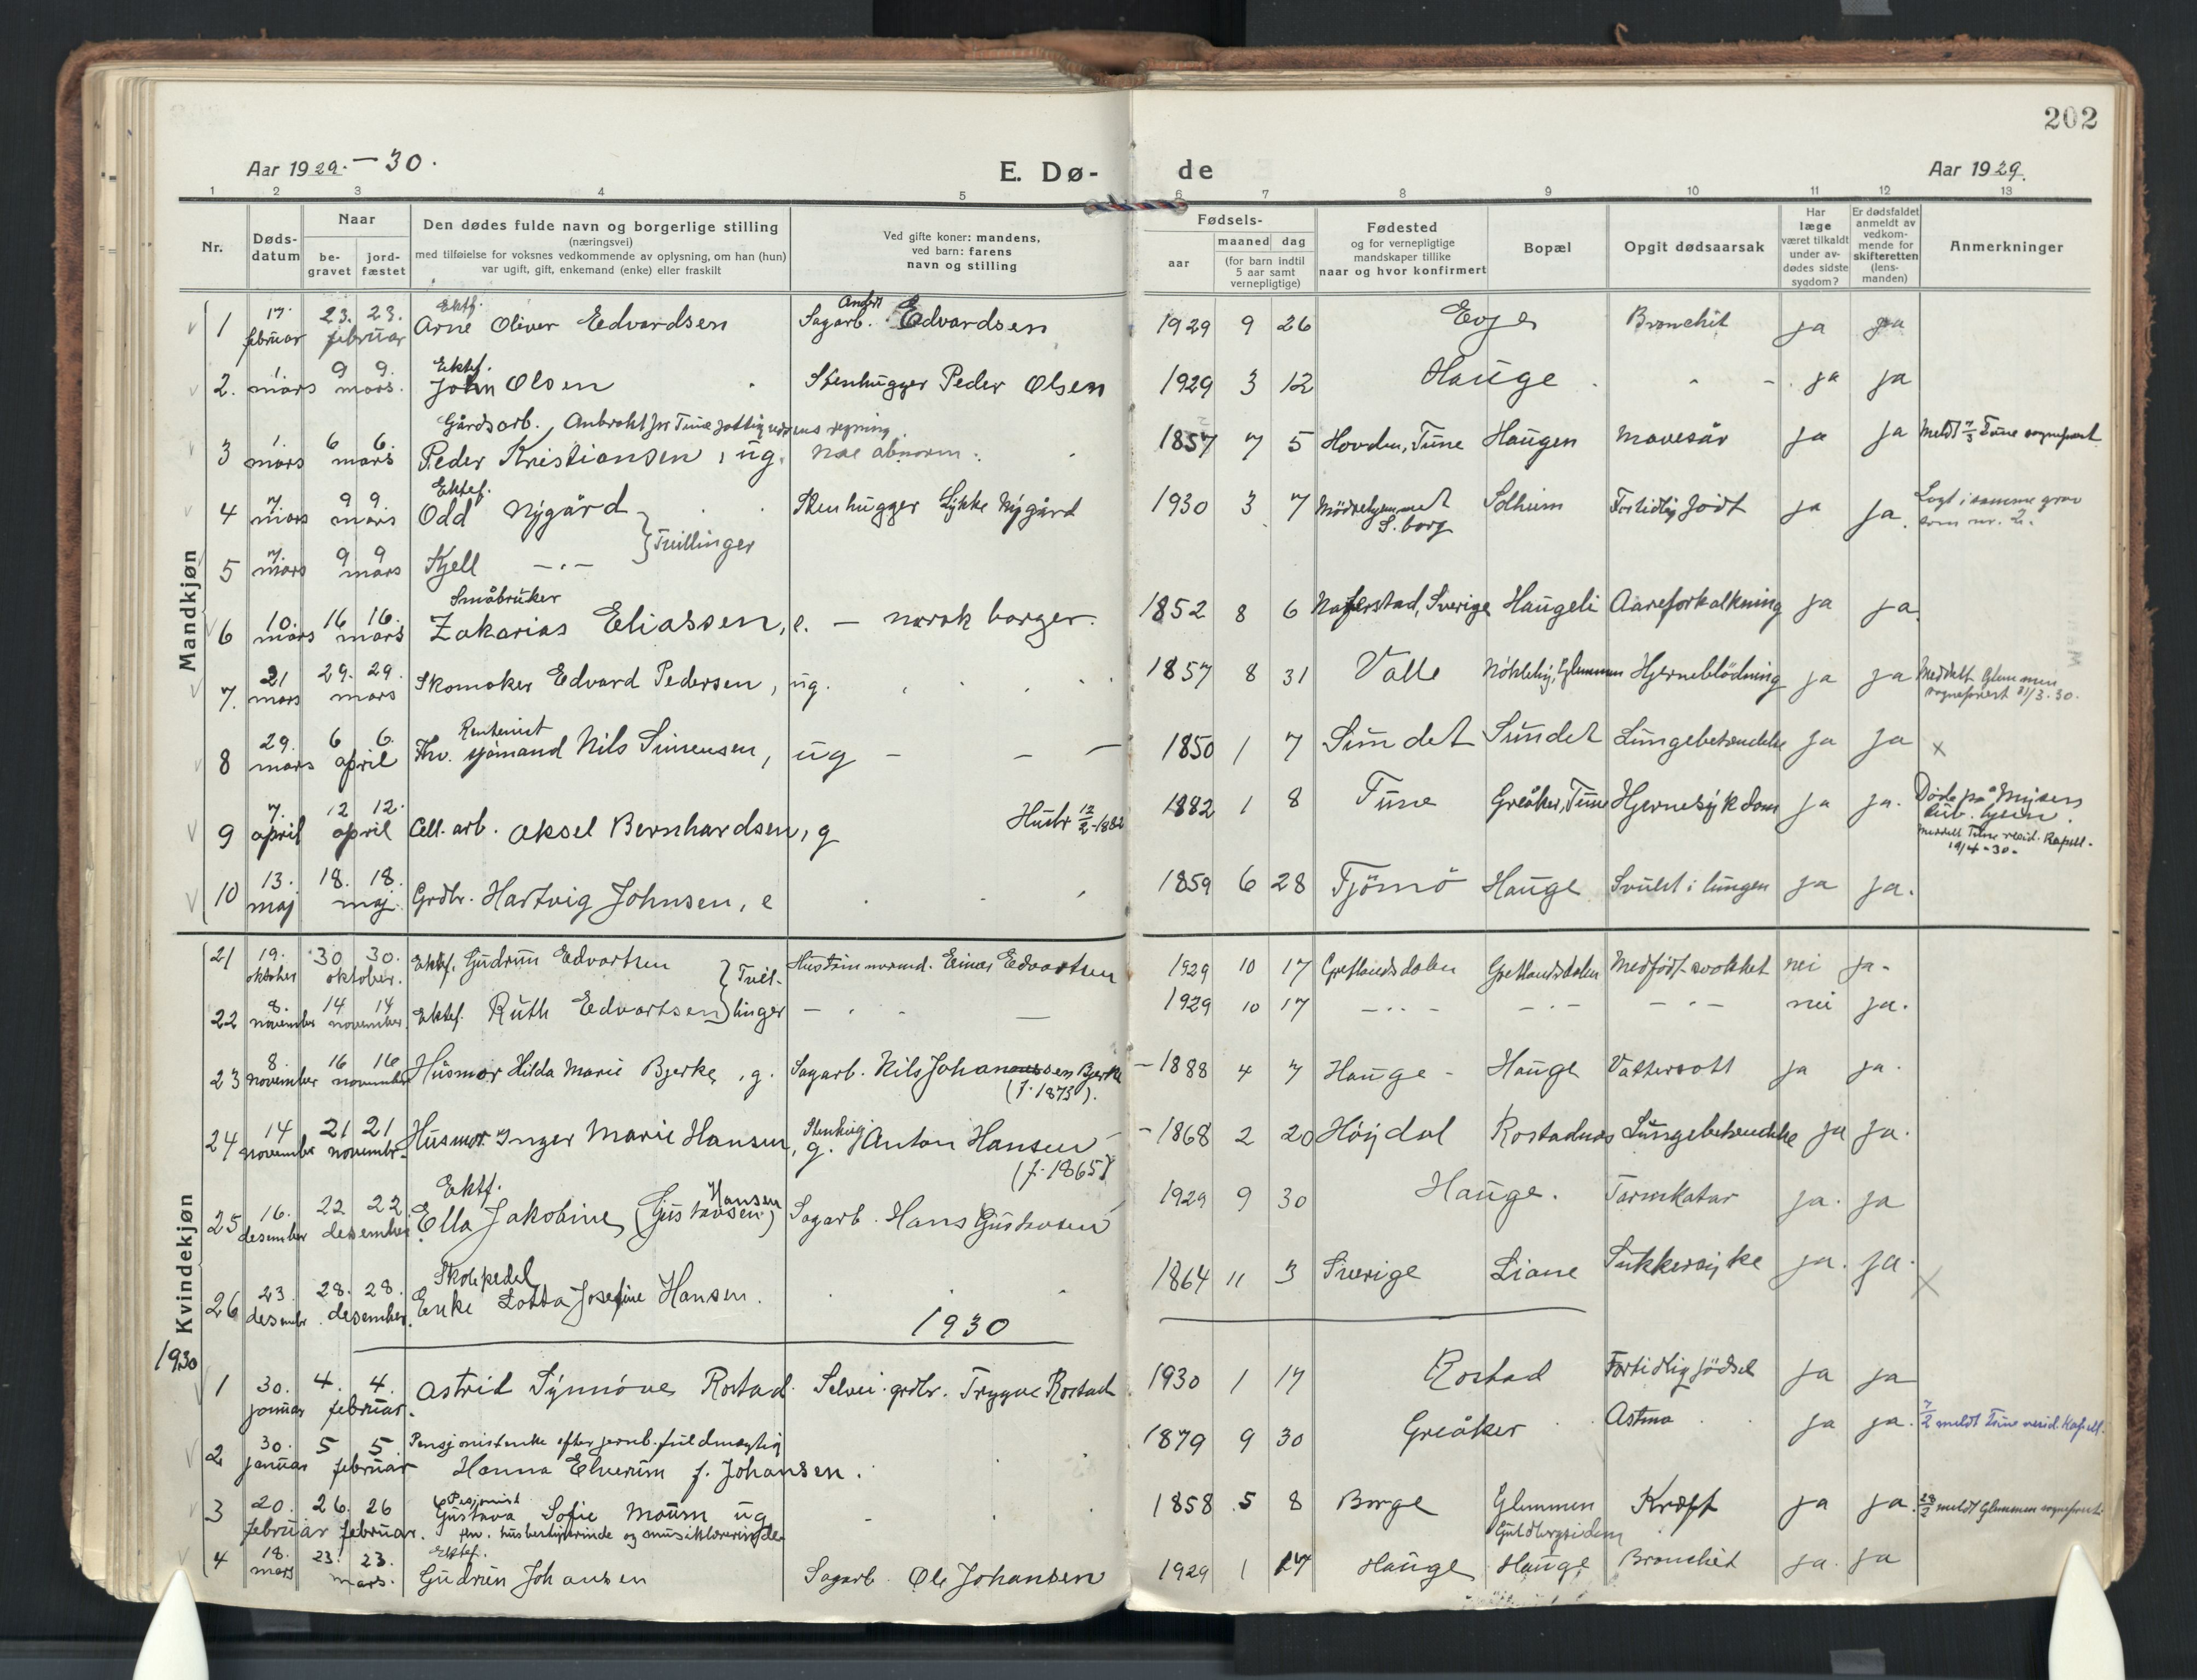 202
Aar 1929. - 30.
E. Dø-
de
Aar 1929.
1 2 3 4 5 6 7 8 9 10 11 12 13
Nr.
Døds-datum
Naar
be-gravet
jord-fæstet
Den dødes fulde navn og borgerlige stilling
(næringsvei)
med tilføielse for voksnes vedkommende av oplysning, om han (hun)
var ugift, gift, enkemand (enke) eller fraskilt
Ved gifte koner: mandens,
ved barn: farens
navn og stilling
Fødsels-
aar
maaned dag
(for barn indtil
5 aar samt
vernepligtige)
Fødested
og for vernepligtige
mandskaper tillike
naar og hvor konfirmert
Bopæl
Opgit dødsaarsak
Har
læge
været tilkaldt
under av-
dødes sidste
sygdom?
Er dødsfaldet
anmeldt av
vedkom-
mende for
skifteretten
(lens-
manden)
Anmerkninger
Mandkjøn
1 17. februar 23. 23. februar Ektf. Arne Oliver Edvardsen Sagarb. Edvardsen 1929 9 26 Bronchit ja ja
2. 1. mars 9 9. mars. Ektef. John Olsen Stenhugger Peder Olsen 1929 3 12 Hauge - - ja ja
Gårdsarb., Anbrakt for Tune regning.
3 1. mars 6 6. mars Peder Kristiansen, ug. noe abnorm. 1857 7 5 Hovden, Tune Haugen mavesår ja ja Meldt 7/3 Tune sogneprest
4 7. mars 9 9. mars Ektef. Odd Nygård Stenhugger Lykke Nygård 1930 3 7 S.borg Solheim Fortidlig födt ja ja. Lagt i samme grav som nr. 2.
5 7. mars 9 9 mars Kjell -"- } Tvillinger
Småbruker
6 10. mars 16 16. mars Zakarias Eliassen, e. - norsk borger. 1852 8 6 Sverige Haugeli Aareforkalkning ja ja.
7. 21 mars 29. 29. mars Skomaker Edvard Pedersen, ug. 1857 8 31 Valle Glemmen Hjerneblödning ja ja Meddelt Glemmen sogneprest 31/3.30.
Rentenist
8 29. mars 6 6. april Fhv. sjömand Nils Simensen, ug - - - 1850 1 7 Sundet Sundet Lungebetendelse ja ja x
9 7. april 12 12. april Cell. arb. Aksel Bernhardsen, g Hustr 12/2-1882 1882 1 8 Tune Greåker, Tune Hjernesykdom ja ja. Döde på Mysen
Meddelt Tune resid. Kapell. 19/4-30.
10 13. maj 18. 18. maj. Grdbr. Hartvig Johnsen, e 1859 6 28 Tjömö Hauge Svulst i lungen ja ja.
Kvindekjøn
21 19. oktober 30 30. oktober. Ektef. Gudrun Edvartsen } Tvil- Einar Edvartsen 1929 10 17 Gretlandsdalen Gretlandsdalen Medfödt svakhet nei ja.
22 8. november 14 14 november Ektef. Ruth Edvartsen } linger - " - 1929 10 17 -"- -"- -"- nei ja.
23 8. november 16 16 november Husmor Hilda Marie Bjerke, g. Sagarb. Nils Johansen Bjerke (f. 1873). 1888 4 7 Hauge - Hauge Vattersott ja ja.
24 14 november 21 21 november Husmor Inger Marie Hansen, g. Stenhug. Anton Hansen (f. 1865) 1868 2 20 Höydal Rostadnes Lungebetendelse ja ja.
Ektf.
25 16. desember 22 22 desember Ella Jakobine (Gustavsen) Hansen Sagarb. Hans Gustavsen 1929 9 30 Hauge. Tarmkatar ja. ja
26 23. desembr 28. 28. desember. Enke Lotta Josefine Hansen. 1864 11 3 Sverige Liane Sukkersyke ja. ja.
1930
1930
1 30. januar 4. 4. februar. Astrid Synnöve Rostad. Selvei. grdbr. Trygve Rostad 1930 1 17 Rostad Fortidlig födsel ja ja
2 30. januar 5 5 februar Pensjonistenke efter jernb.fuldmegtig
Hanna Elverum f. Johansen. 1879 9 30 Greåker Astma ja ja. 7/2 meldt Tune resid. Kapell.
3 20. februar 26 26 februar. Pesjonist Gustava Sofie Moum ug
fhv. husbestyrerinde og musiklærerinde 1858 5 8 Borge Glemmen Kreft ja ja. 28/2 meldt Glemmen sogneprest.
4 18. mars 23. 23. mars. Ektef. Gudrun Johansen Sagarb. Ole Johansen 1929 1 17 Hauge Hauge Bronchit ja. ja